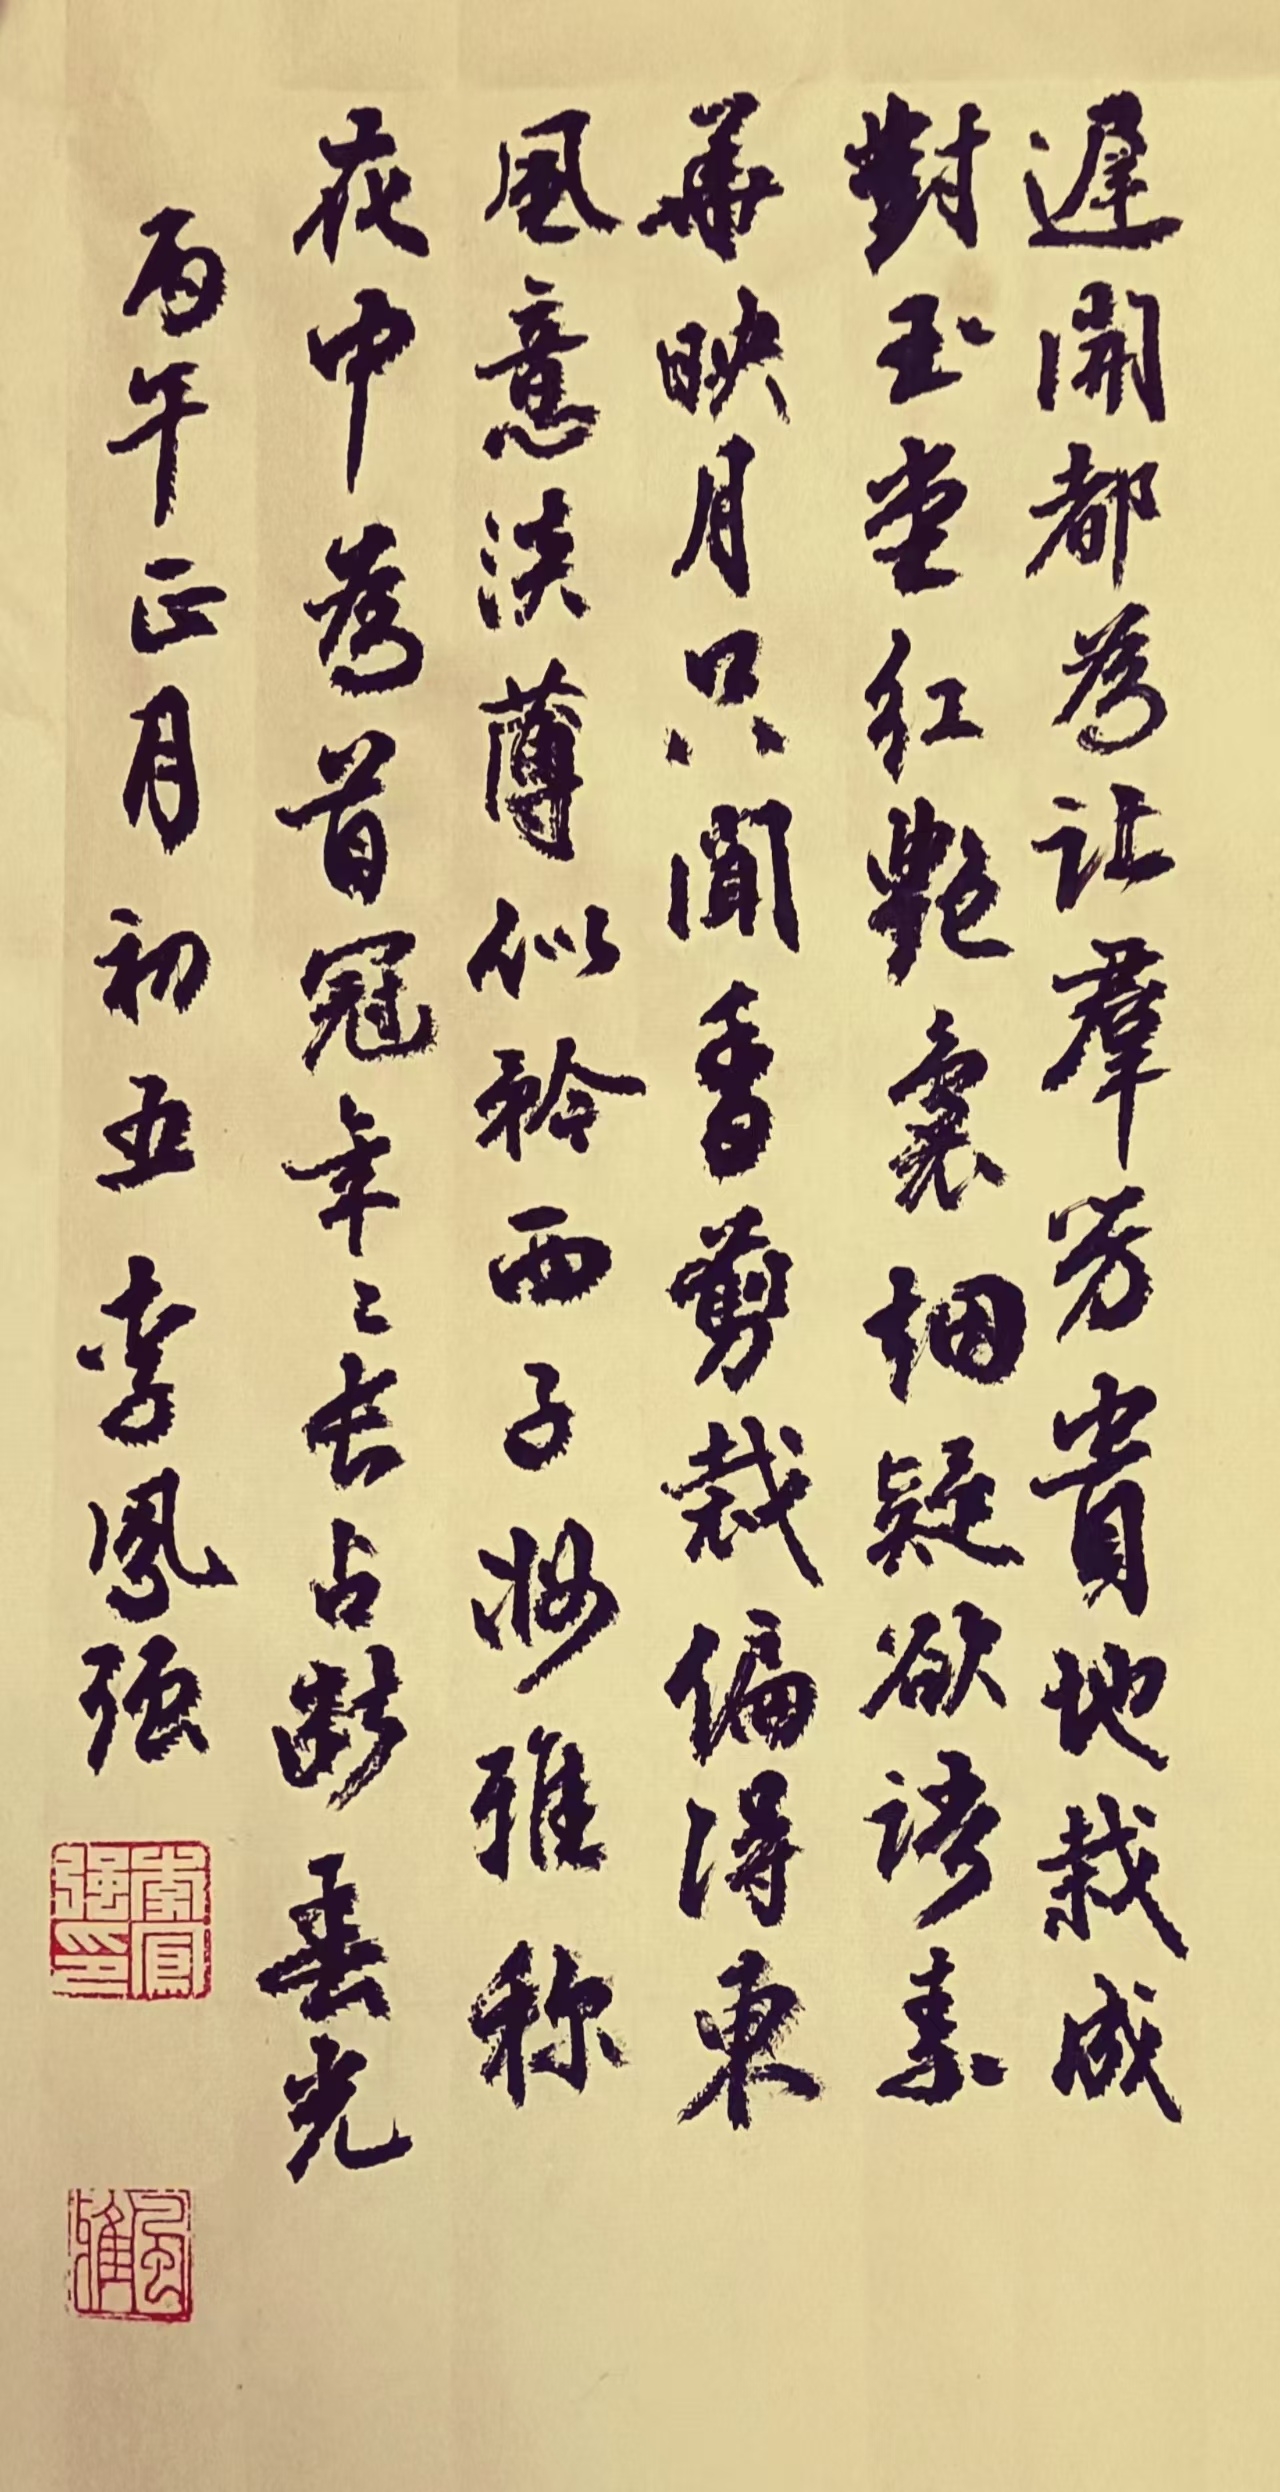 遲開都為讓羣芳貴地栽成
對玉堂紅艷裊烟疑欲語素
華映月只聞香剪裁偏得東
風意淡薄似矜西子妝雅称
花中為首冠年〻長占斷春光
丙午正月初五李鳳强
李鳳
强印
風
雅